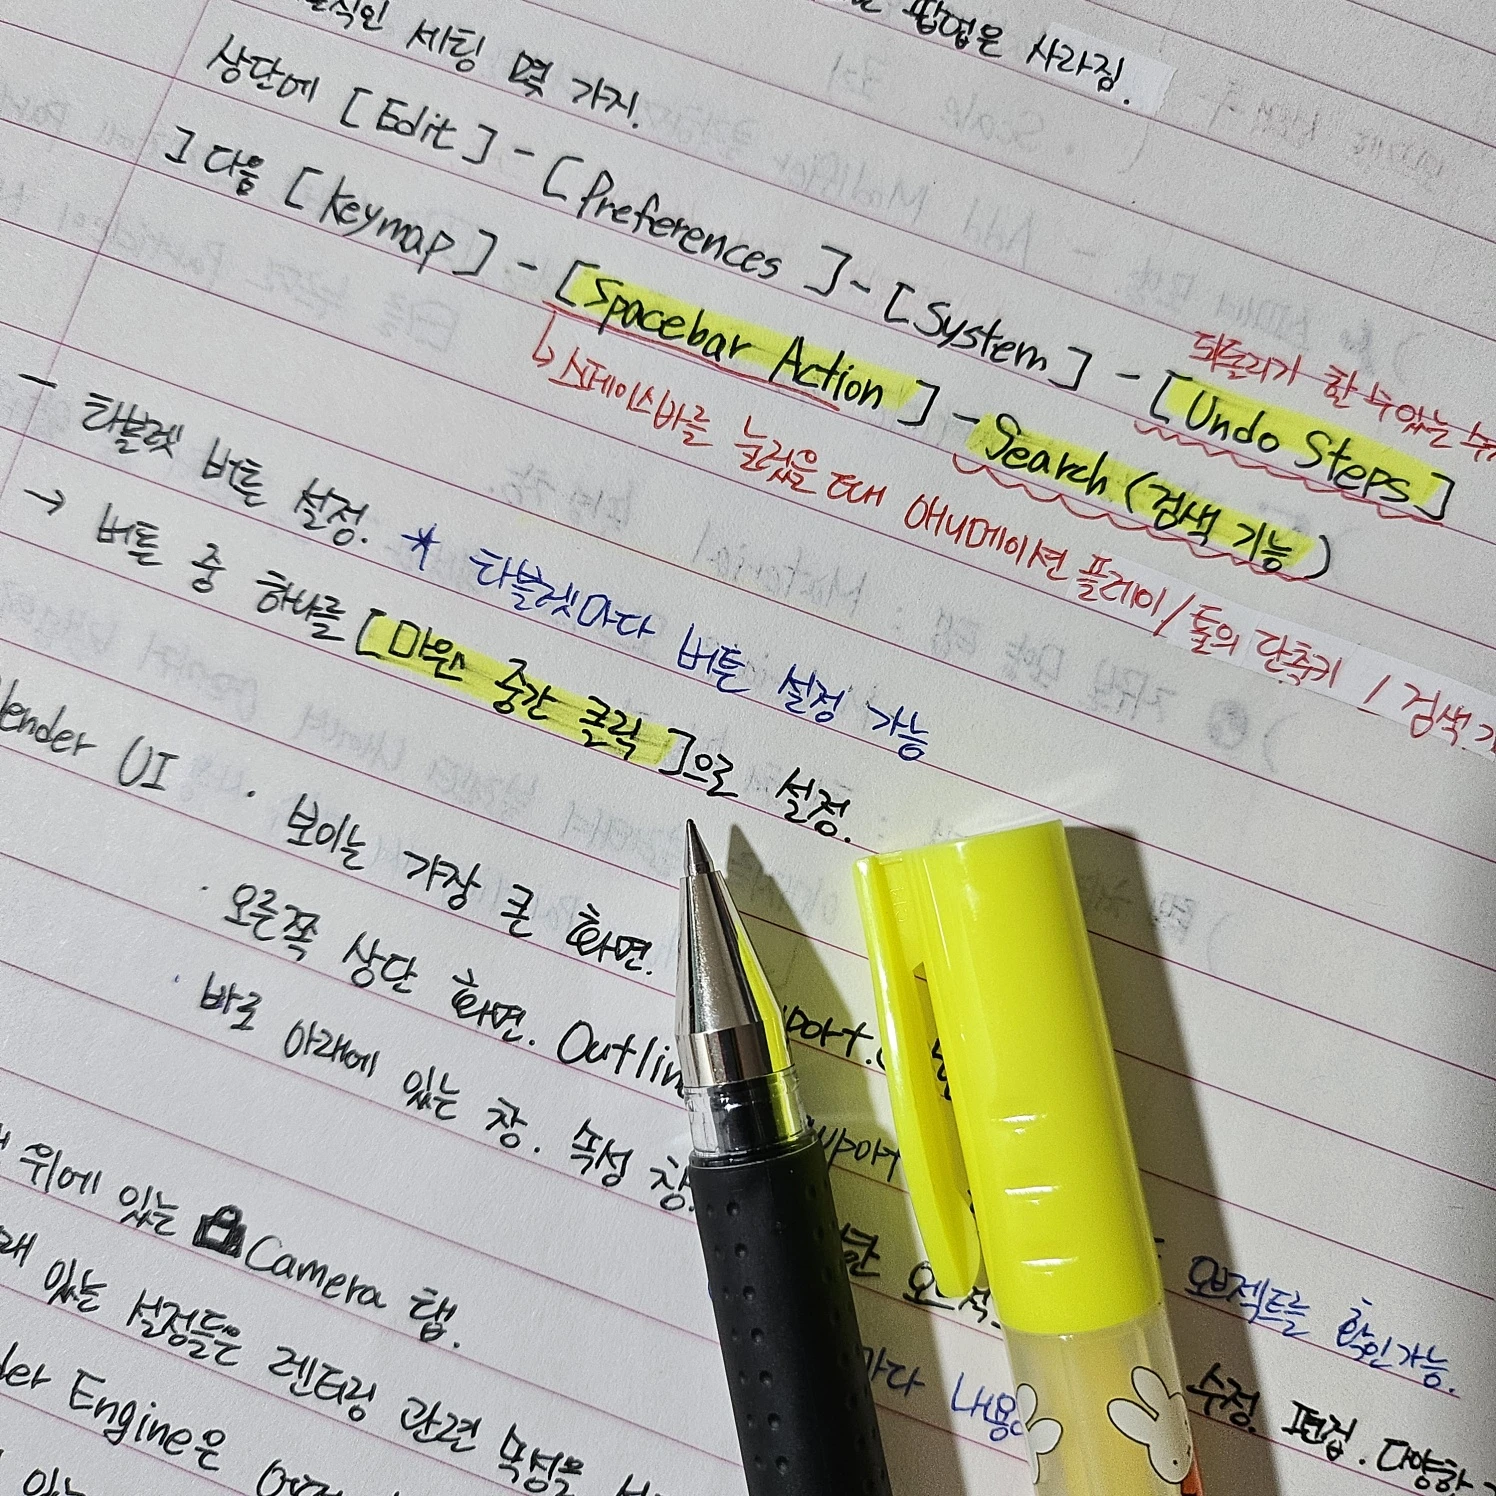 팝업은 사라짐.
세팅 몇 가지.
상단에 [Edit] - [Preferences] - [System] - [Undo Steps]
되돌리기 할 수 있는
그 다음 [Keymap] - [Spacebar Action] - Search (검색 기능)
↳ 스페이스바를 눌렀을 때 애니메이션 플레이 / 툴의 단축키 / 검색
- 타블렛 버튼 설정. * 타블렛마다 버튼 설정 가능
→ 버튼 중 하나를 [마우스 중간 클릭]으로 설정.
lender UI · 보이는 가장 큰 화면.
· 오른쪽 상단 화면. Outlin
· 바로 아래에 있는 창. 속성 창
오브젝트를 확인가능.
위에 있는 Camera 탭.
마다 내용
수정. 편집. 다양한
있는 설정들은 렌더링 관련 속성을
der Engine은
있는